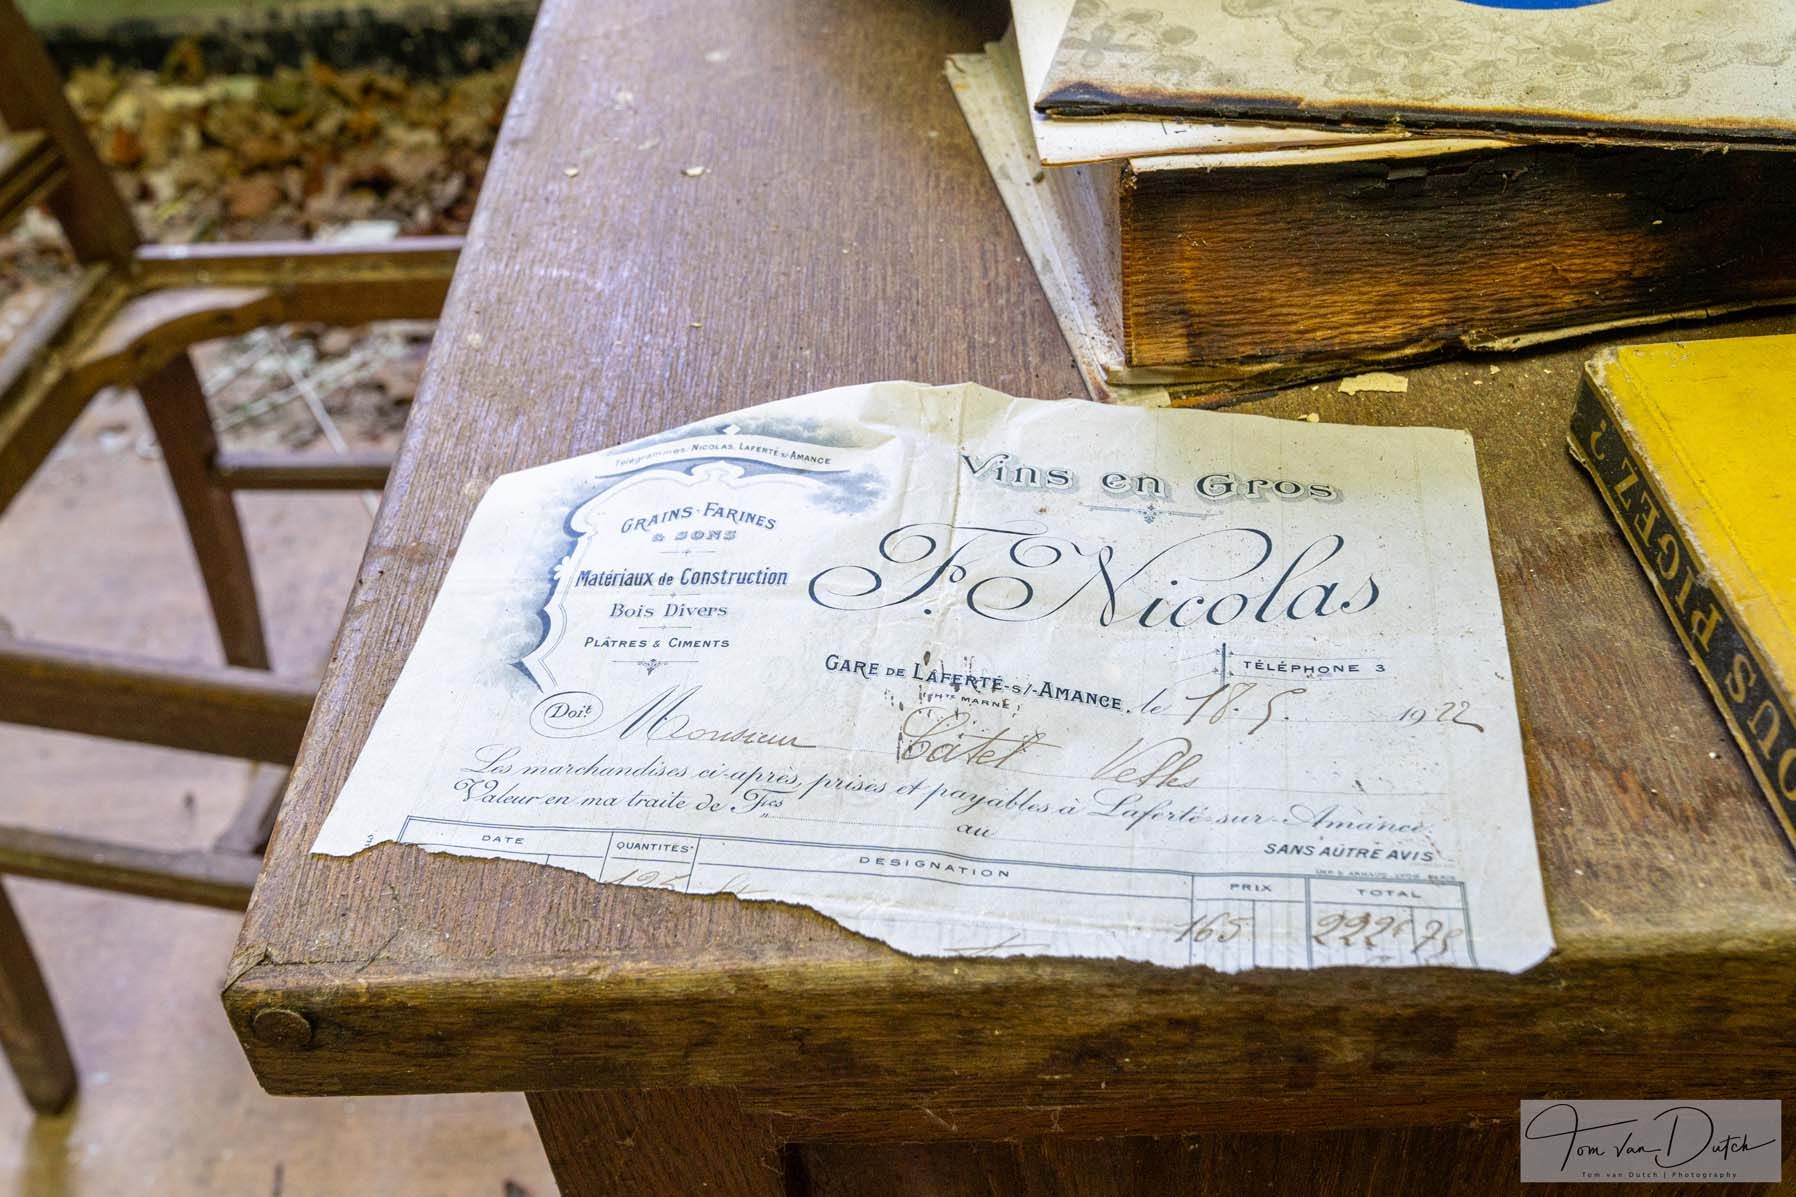 Télégrammes. NICOLAS. LAFERTÉ S/-AMANCE
GRAINS - FARINES
& SONS
Matériaux de Construction
Bois Divers
PLÂTRES & CIMENTS
Vins en Gros
F. Nicolas
GARE DE LAFERTÉ-S/-AMANCE, le 18. 5. 1922
(HTE MARNE)
TÉLÉPHONE 3
Doit Monsieur
Les marchandises ci-après, prises et payables à Laferté-sur-Amance.
Valeur en ma traite de Fcs au
SANS AUTRE AVIS
DATE QUANTITÉS DESIGNATION PRIX TOTAL
165
VOUS PIGEZ ?
Tom van Dutch
Tom van Dutch | Photography